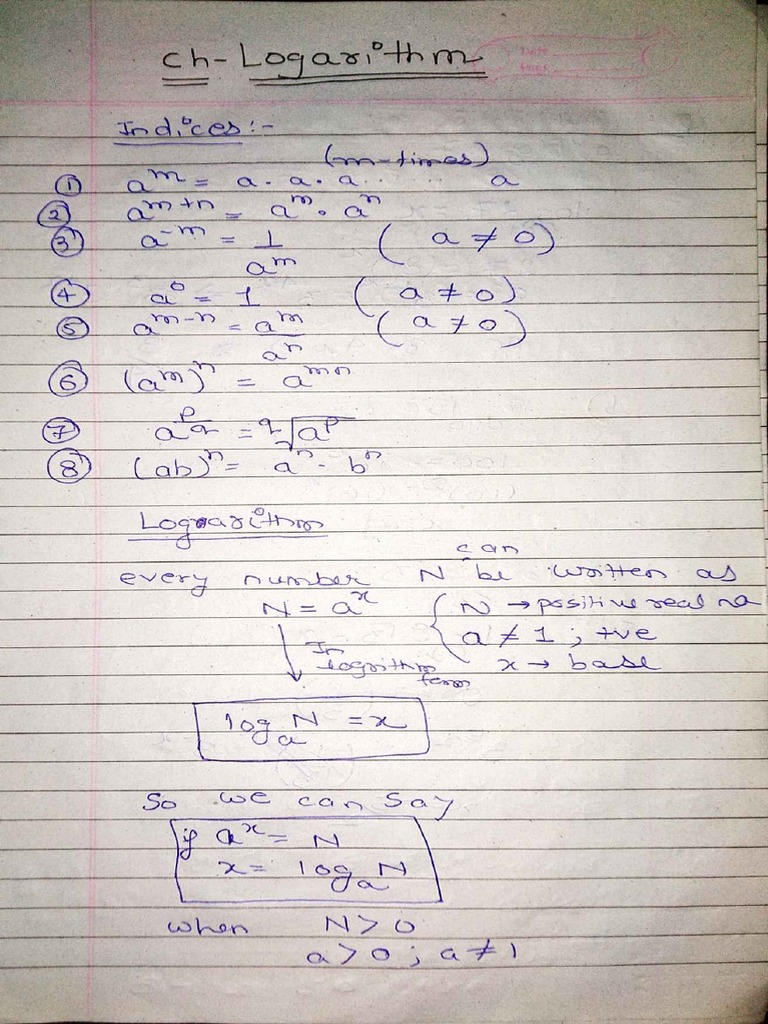 ch-Logarithm
Indices:-
(m-times)
① aᵐ = a · a · a ........ a
② aᵐ⁺ⁿ = aᵐ · aⁿ
③ a⁻ᵐ = 1/aᵐ (a ≠ 0)
④ a⁰ = 1 (a ≠ 0)
⑤ aᵐ⁻ⁿ = aᵐ/aⁿ (a ≠ 0)
⑥ (aᵐ)ⁿ = aᵐⁿ
⑦ a^(p/q) = q√(aᵖ)
⑧ (ab)ⁿ = aⁿ · bⁿ
Logarithm
every number N can be written as
N = aˣ { N → positive real no
a ≠ 1 ; +ve
x → base
In logrithm form
logₐ N = x
So we can say
if aˣ = N
x = logₐ N
when N > 0
a > 0 ; a ≠ 1